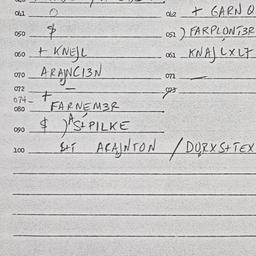 041 O 042 + GARN O
050 $ 051 ) FARPLONT3R
060 + KNEJL 061 KNAJLXLT
070 ARAJNCI3N 071 —
072 — 073
074 - +
080 FARNEM3R
090 $ )AS+PILKE
100 $+T ARAJNTON / DORXS+TEX